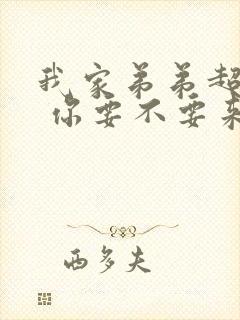 我家弟弟超
你要不要来
西多夫